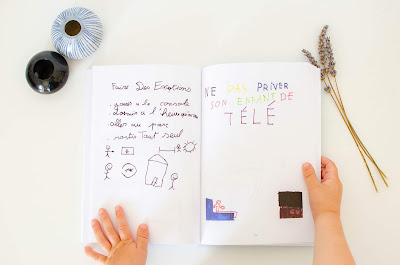 Faire Des Exceptions
. jouer a la console
. dormir a l'heure
aller au parc
. sortir Tout seul
NE PAS PRIVER
SON ENFANT DE
TÉLÉ